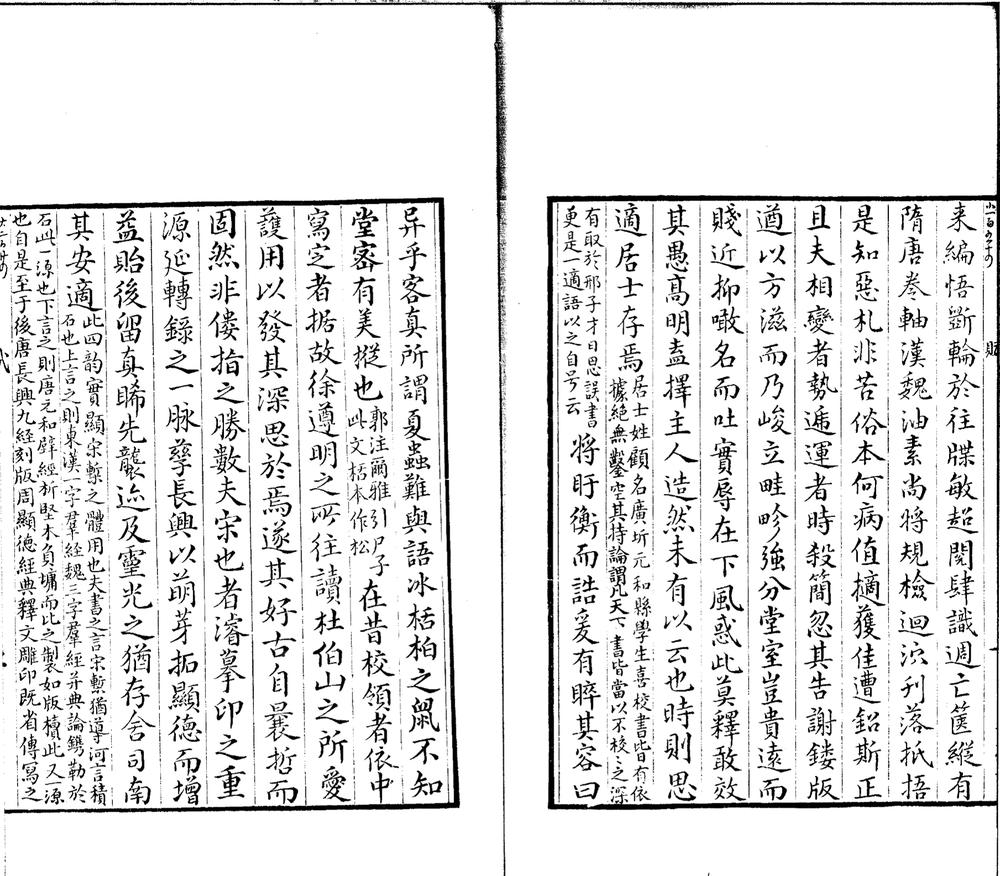 来編悟斷輪於往牒敏超閱肆識週亡篋縱有
隋唐卷軸漢魏油素尚將規檢迴㳂刋落抵捂
是知惡札非苦俗本何病值擿獲佳遭鉛斯正
且夫相變者勢遞運者時殺簡忽其告謝鏤版
遒以方滋而乃峻立畦畛強分堂室豈貴遠而
賤近抑噉名而吐實辱在下風惑此莫釋敢效
其愚高明盍擇主人造然未有以云也時則思
適居士存焉
居士姓顧名廣圻元和縣學生喜校書皆有依
據絕無鑿空其持論謂凡天下書皆當以不校校之深
有取於邢子才日思誤書
更是一適語以之自号云
將盱衡而誥爰有睟其容曰
异乎客真所謂夏蟲難與語冰栝柏之鼠不知
堂宻有美樅也
郭注爾雅引尸子
此文栝本作松
在昔校領者依中
寫定者据故徐遵明之所往讀杜伯山之所愛
護用以發其深思於焉遂其好古自曩哲而
固然非僂指之勝數夫宋也者濬摹印之重
源延轉錄之一脉孳長興以萌芽拓顯德而增
益貽後留真睎先襲迹及靈光之猶存舍司南
其安適
此四韵實顯宋槧之體用也夫書之言宋槧猶導河言積
石也上言之則東漢一字羣經魏三字羣經并典論鐫勒於
石此一源也下言之則唐元和壁經析堅木負墉而比之製如版櫝此又一源
也自是至于後唐長興九經刻版周顯德經典釋文雕印既省傳寫之